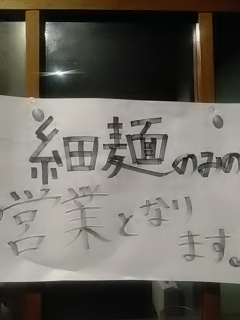 細麺のみの
営業となり
ます。